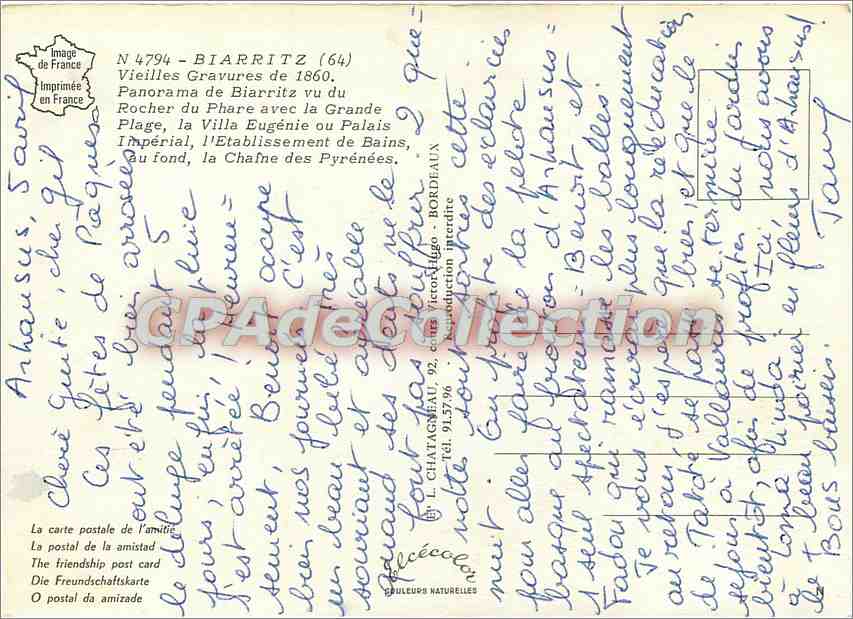 Image
de France
Imprimée
en France
N 4794 - BIARRITZ (64)
Vieilles Gravures de 1860.
Panorama de Biarritz vu du
Rocher du Phare avec la Grande
Plage, la Villa Eugénie ou Palais
Impérial, l'Etablissement de Bains,
au fond, la Chaîne des Pyrénées.
Arhansus, 5 avril
Chère Guite, cher Gil
Ces fêtes de Pâques
ont été bien arrosées
le déluge pendant 5
jours, enfin, la pluie
s'est arrêtée! Heureu=
sement, Benoit occupe
bien nos journées. C'est
un beau bébé très
souriant et agréable
quand ses dents ne le
font pas souffrir. 2 que=
nottes sont sorties cette
nuit. On profite des éclaircies
pour aller faire la pelote
basque au fronton d'Arhansus=
1 seul spectateur: Benoit et
Fadou qui ramasse les balles!
Je vous écrirai plus longuement
au retour. J'espère que la rééducation
de Tatie se passe bien, et que le
séjour à Vallauris se termine
bientôt, afin de profiter du jardin
à Lorna Linda. Ici nous avons
le + beau poirier en fleurs d'Arhansus!
Bons baisers.
CPAdeCollection
Et L. CHATAGNEAU, 92, cours Victor-Hugo - BORDEAUX
Tél. 91.57.96 - Reproduction interdite
La carte postale de l'amitié
La postal de la amistad
The friendship post card
Die Freundschaftskarte
O postal da amizade
elcécolor
COULEURS NATURELLES